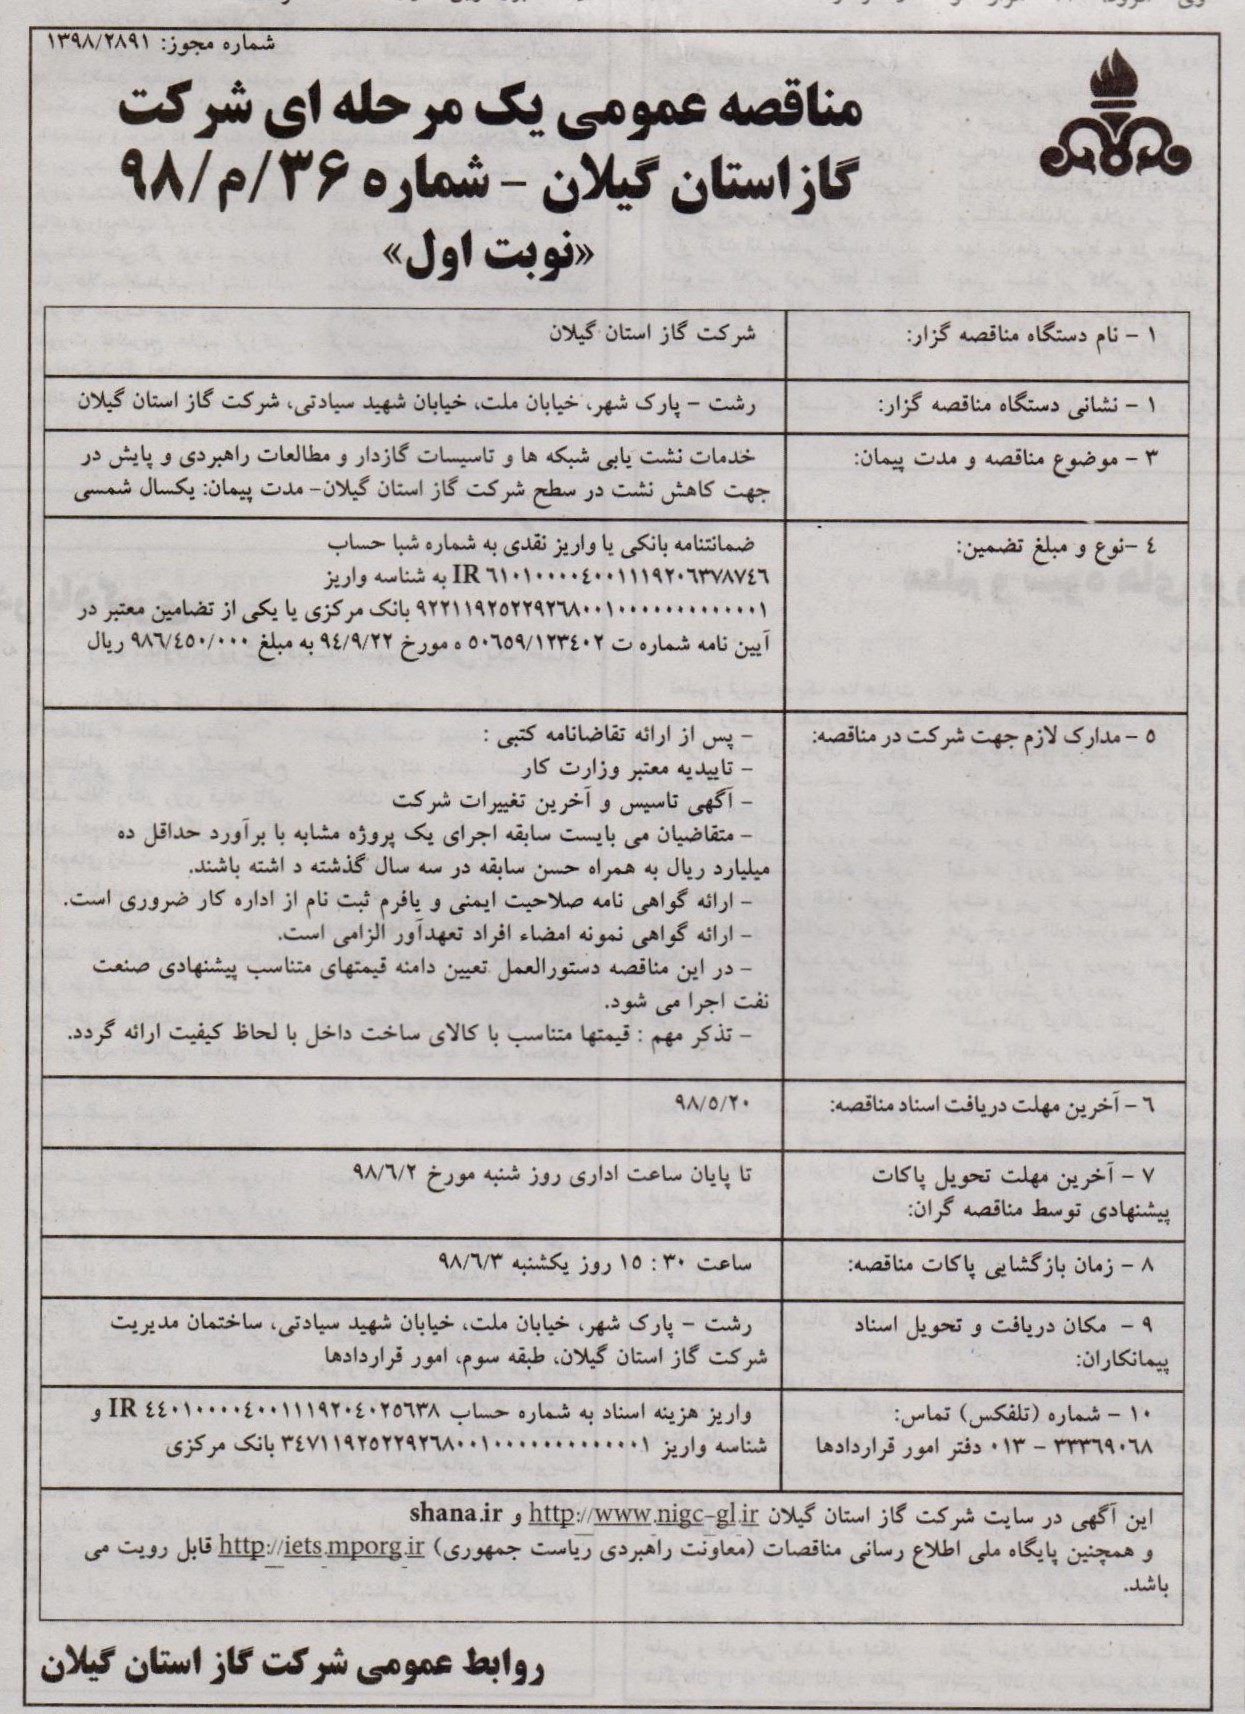 شماره مجوز: ۱۳۹۸/۲۸۹۱
مناقصه عمومی یک مرحله ای شرکت
گاز استان گیلان - شماره ۳۶/م/۹۸
«نوبت اول»
۱ - نام دستگاه مناقصه گزار:
شرکت گاز استان گیلان
۱ - نشانی دستگاه مناقصه گزار:
رشت - پارک شهر، خیابان ملت، خیابان شهید سیادتی، شرکت گاز استان گیلان
۳ - موضوع مناقصه و مدت پیمان:
خدمات نشت یابی شبکه ها و تاسیسات گازدار و مطالعات راهبردی و پایش در
جهت کاهش نشت در سطح شرکت گاز استان گیلان- مدت پیمان: یکسال شمسی
٤ -نوع و مبلغ تضمین:
ضمانتنامه بانکی یا واریز نقدی به شماره شبا حساب
IR ٦١٠١٠٠٠٠٤٠٠١١١٩٢٠٦٣٧٨٧٤٦ به شناسه واریز
٩٢٢١١٩٢٥٢٢٩٢٦٨٠٠١٠٠٠٠٠٠٠٠٠٠٠٠١ بانک مرکزی یا یکی از تضامین معتبر در
آیین نامه شماره ت ٥٠٦٥٩/١٢٣٤٠٢ ه مورخ ٩٤/٩/٢٢ به مبلغ ٩٨٦/٤٥٠/٠٠٠ ریال
٥ - مدارک لازم جهت شرکت در مناقصه:
- پس از ارائه تقاضانامه کتبی :
- تاییدیه معتبر وزارت کار
- آگهی تاسیس و آخرین تغییرات شرکت
- متقاضیان می بایست سابقه اجرای یک پروژه مشابه با برآورد حداقل ده
میلیارد ریال به همراه حسن سابقه در سه سال گذشته د اشته باشند.
- ارائه گواهی نامه صلاحیت ایمنی و یافرم ثبت نام از اداره کار ضروری است.
- ارائه گواهی نمونه امضاء افراد تعهدآور الزامی است.
- در این مناقصه دستورالعمل تعیین دامنه قیمتهای متناسب پیشنهادی صنعت
نفت اجرا می شود.
- تذکر مهم : قیمتها متناسب با کالای ساخت داخل با لحاظ کیفیت ارائه گردد.
٦ - آخرین مهلت دریافت اسناد مناقصه:
٩٨/٥/٢٠
٧ - آخرین مهلت تحویل پاکات
پیشنهادی توسط مناقصه گران:
تا پایان ساعت اداری روز شنبه مورخ ٩٨/٦/٢
٨ - زمان بازگشایی پاکات مناقصه:
ساعت ٣٠ : ١٥ روز یکشنبه ٩٨/٦/٣
٩ - مکان دریافت و تحویل اسناد
پیمانکاران:
رشت - پارک شهر، خیابان ملت، خیابان شهید سیادتی، ساختمان مدیریت
شرکت گاز استان گیلان، طبقه سوم، امور قراردادها
١٠ - شماره (تلفکس) تماس:
٣٣٣٦٩٠٦٨ - ٠١٣ دفتر امور قراردادها
واریز هزینه اسناد به شماره حساب IR ٤٤٠١٠٠٠٠٤٠٠١١١٩٢٠٤٠٢٥٦٣٨ و
شناسه واریز ٣٤٧١١٩٢٥٢٢٩٢٦٨٠٠١٠٠٠٠٠٠٠٠٠٠٠٠١ بانک مرکزی
این آگهی در سایت شرکت گاز استان گیلان http://www.nigc-gl.ir و shana.ir
و همچنین پایگاه ملی اطلاع رسانی مناقصات (معاونت راهبردی ریاست جمهوری) http://iets.mporg.ir قابل رویت می
باشد.
روابط عمومی شرکت گاز استان گیلان